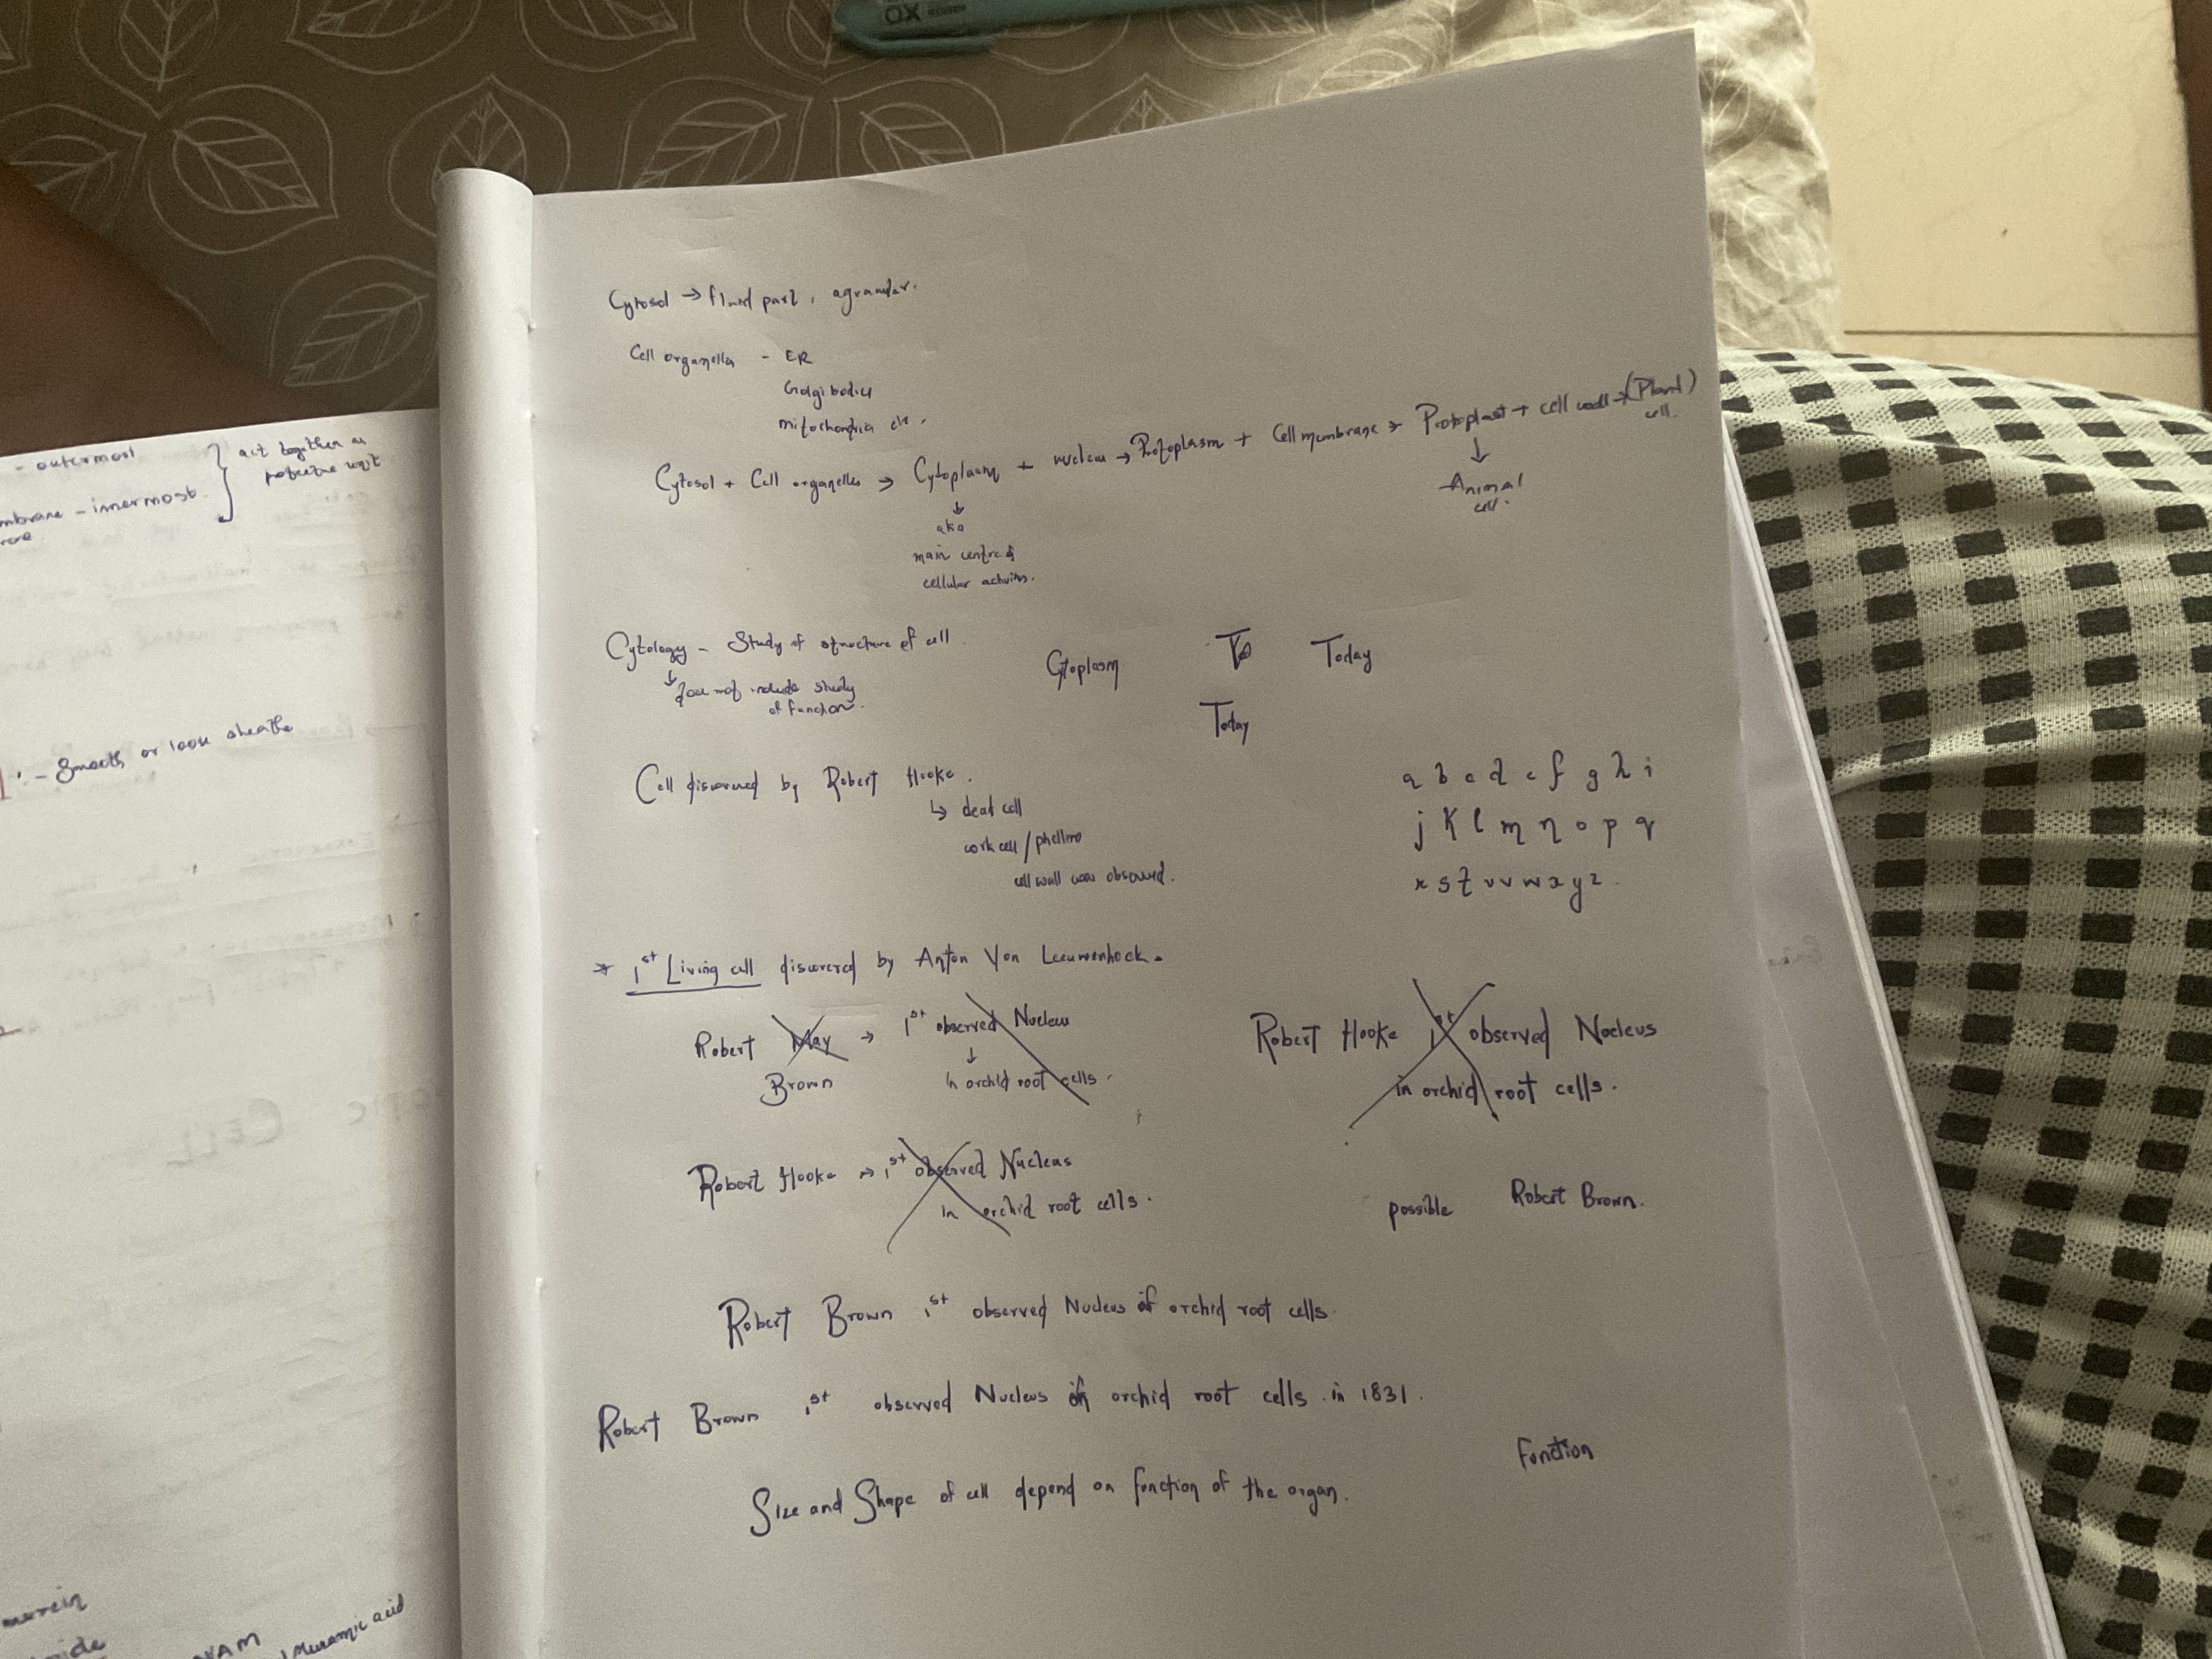 OX
- outermost
act together as
mbrane - innermost
- Smooth or loose sheathe
NAM
Muramic acid
Cytosol → fluid part, agranular.
Cell organelles - ER
Golgi bodies
mitochondria etc.
Cytosol + Cell organelles → Cytoplasm + nucleus → Protoplasm + Cell membrane → Protoplast + cell wall → (Plant)
cell.
↓
Animal
cell.
↓
aka
main centre of
cellular activities.
Cytology - Study of structure of cell.
↓
not include study
of function.
Cytoplasm
To
Today
Today
Cell discovered by Robert Hooke.
↳ dead cell
cork cell / phellem
cell wall was observed.
a b c d e f g h i
j k l m n o p q
r s t u v w x y z.
* 1st Living cell discovered by Anton Von Leeuwenhock.
Robert May → 1st observed Nucleus
Brown
↓
in orchid root cells.
Robert Hooke 1st observed Nucleus
in orchid root cells.
Robert Hooke → 1st observed Nucleus
in orchid root cells.
possible
Robert Brown.
Robert Brown 1st observed Nucleus of orchid root cells.
Robert Brown 1st observed Nucleus in orchid root cells in 1831.
Function
Size and Shape of cell depend on function of the organ.